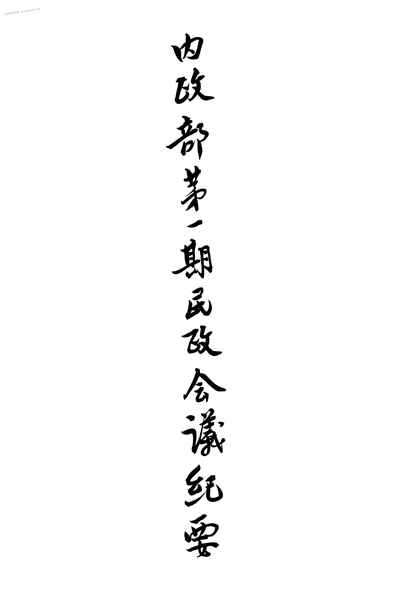 内政部第一期民政会议纪要